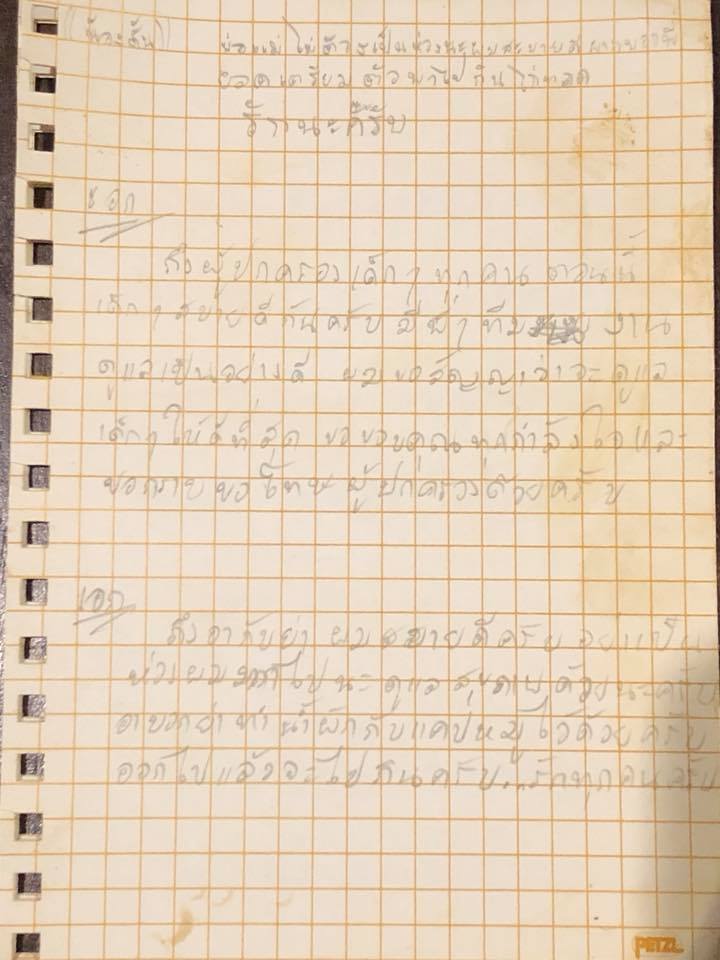 (น้องตั้น) พ่อแม่ ไม่ต้องเป็นห่วงนะผมสบายดี
ยอดเตรียมตัวพาไปกินไก่ทอด
รักนะครับ
โค้ช เอก
ถึงผู้ปกครองเด็กๆทุกคน ตอนนี้
เด็กๆสบายดีกันครับ มีพี่ๆทีมงาน
ดูแลเป็นอย่างดี ผมขอสัญญาว่าจะดูแล
เด็กๆให้ดีที่สุด ขอขอบคุณทุกกำลังใจและ
ขอกราบขอโทษผู้ปกครองด้วยครับ
เอก
ถึงอากับย่า ผมสบายดีครับ อย่าเป็น
ห่วงผมมากไปนะ ดูแลสุขภาพด้วยนะครับ
อาบอกย่าทำน้ำผักกับแคปหมูไว้ด้วยครับ
ออกไปแล้วจะไปกินครับ...รักทุกคนครับ
PETZL